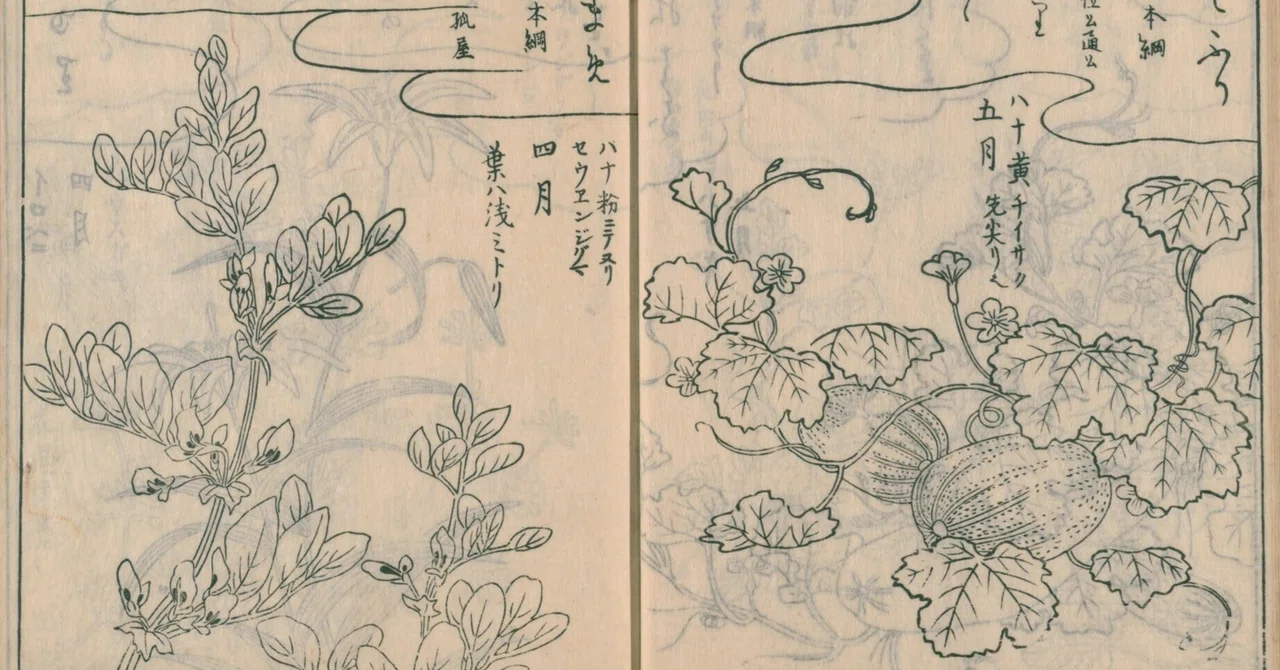 本綱
ハナ黄チイサク
先尖リ
五月
まめ
本綱
孤屋
ハナ粉ニテヌリ
セウエンジクマ
四月
葉ハ浅ミトリ